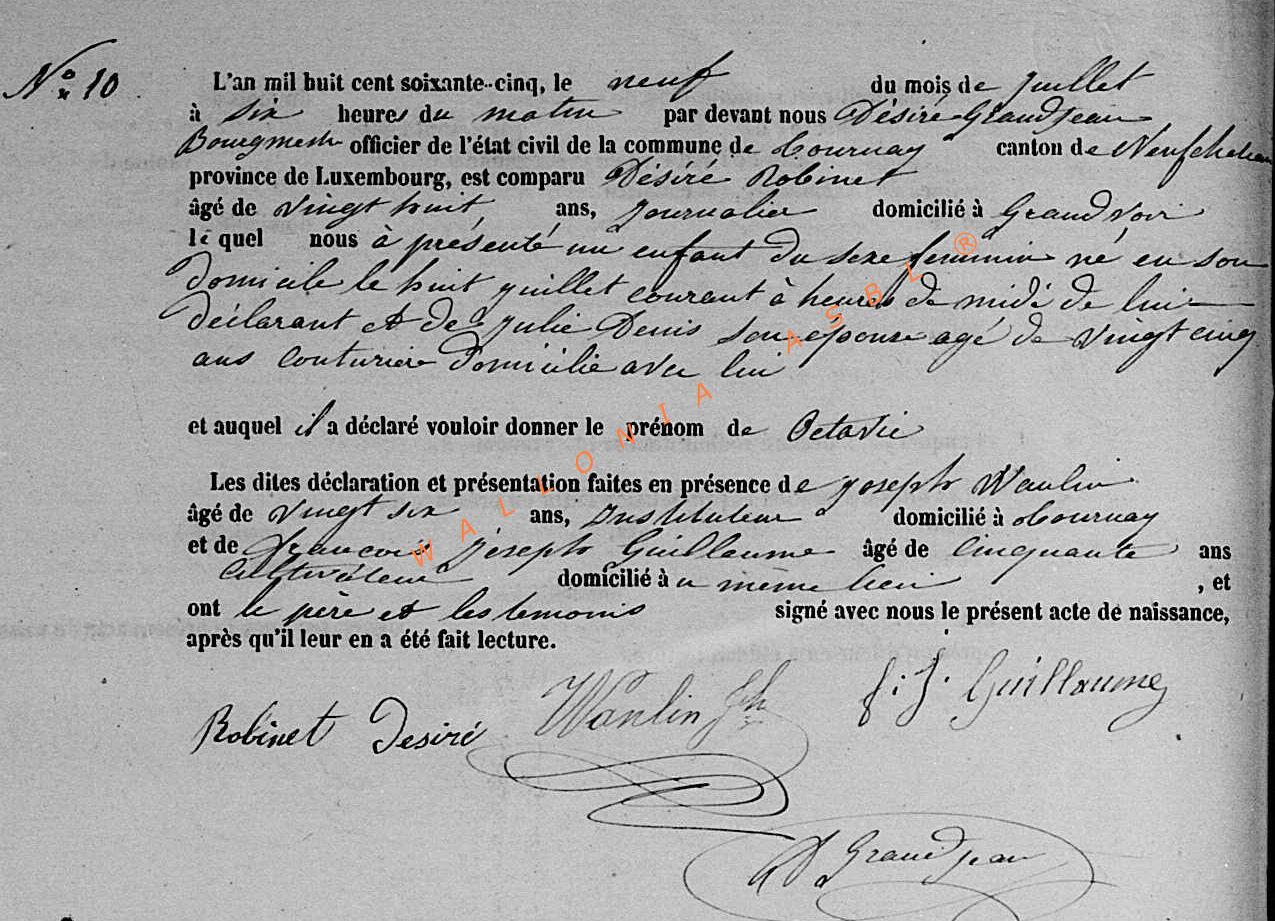 N° 10
L'an mil huit cent soixante-cinq, le neuf du mois de juillet
à six heures du matin par devant nous Désiré Grandjean
Bourgmestre officier de l'état civil de la commune de Tournay canton de Neufchateau
province de Luxembourg, est comparu Désiré Robinet
âgé de vingt huit ans, journalier domicilié à Grandvoir
le quel nous à présenté un enfant du sexe feminin né en son
domicile le huit juillet courant à heures de midi de lui
déclarant et de Julie Denis son épouse agé de vingt cinq
ans couturière domicilié avec lui
et auquel il a déclaré vouloir donner le prénom de Octavie
Les dites déclaration et présentation faites en présence de joseph Wanlin
âgé de vingt six ans, Instituteur domicilié à Tournay
et de françois joseph Guillaume âgé de cinquante ans
Cultivateur domicilié à u même lieu , et
ont le père et les temoins signé avec nous le présent acte de naissance,
après qu'il leur en a été fait lecture.
Robinet Desiré Wanlin Jh f: J. Guillaume
D Grandjean
WALLONIA ASBL ®